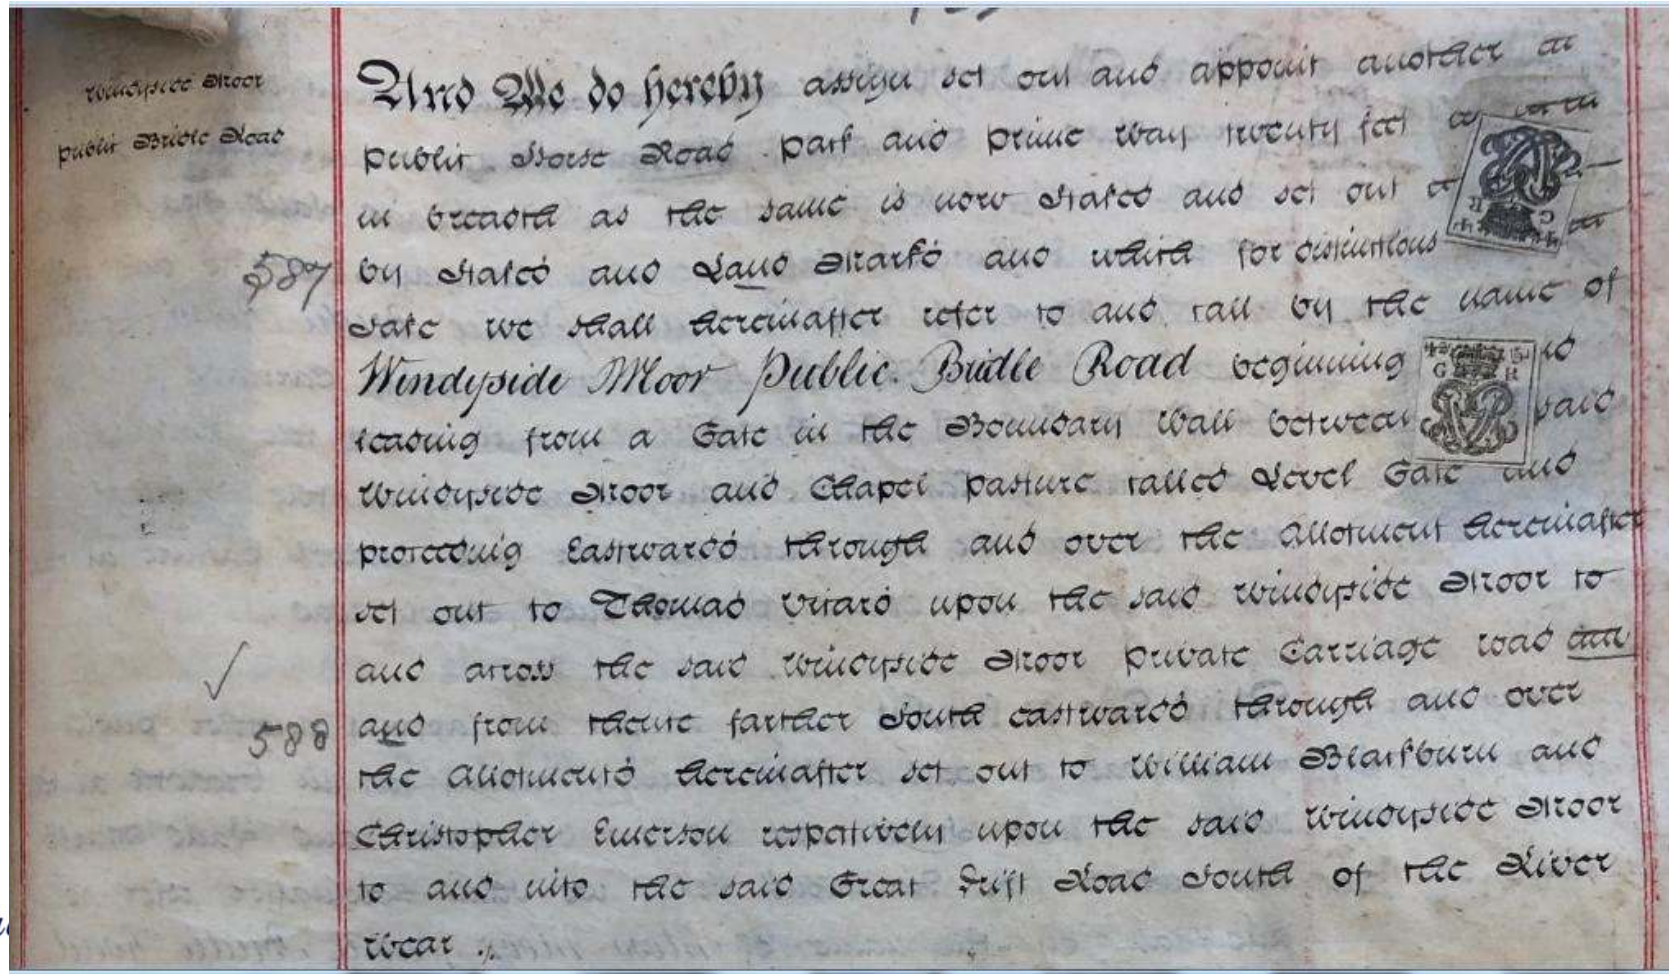 Windyside Moor
public Bridle Road
And We do hereby assign set out and appoint another
public Horse Road Pack and prime Way twenty feet
in breadth as the same is now staked and set out
587
by stakes and Land Marks and which for distinctions
sake we shall hereinafter refer to and call by the name of
Windyside Moor Public Bridle Road beginning
leading from a Gate in the Boundary Wall between said
Windyside Moor and Chapel pasture called Level Gate and
proceeding Eastwards through and over the Allotment hereinafter
set out to Thomas Vitard upon the said Windyside Moor to
and across the said Windyside Moor private Carriage road
588
and from thence farther South eastwards through and over
the Allotments hereinafter set out to William Blackburn and
Christopher Emerson respectively upon the said Windyside Moor
to and into the said Great Drift Road South of the River
Wear
G R